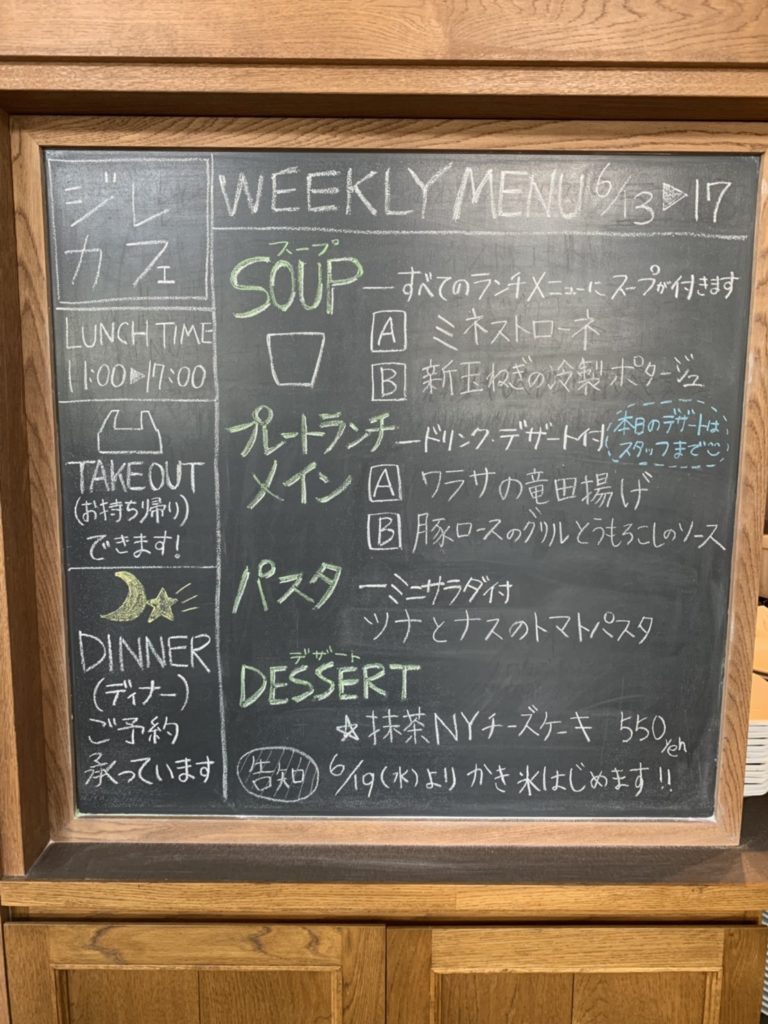 ジレ
カフェ
LUNCH TIME
11:00▶17:00
TAKEOUT
(お持ち帰り)
できます!
DINNER
(ディナー)
ご予約
承っています
WEEKLY MENU 6/13▶17
スープ
SOUP ーすべてのランチメニューにスープが付きます
A ミネストローネ
B 新玉ねぎの冷製ポタージュ
プレートランチ ードリンク・デザート付
本日のデザートは
スタッフまで
メイン A ワラサの竜田揚げ
B 豚ロースのグリルとうもろこしのソース
パスタ ーミニサラダ付
ツナとナスのトマトパスタ
デザート
DESSERT
☆抹茶NYチーズケーキ 550yen
告知 6/19(水)よりかき氷はじめます!!